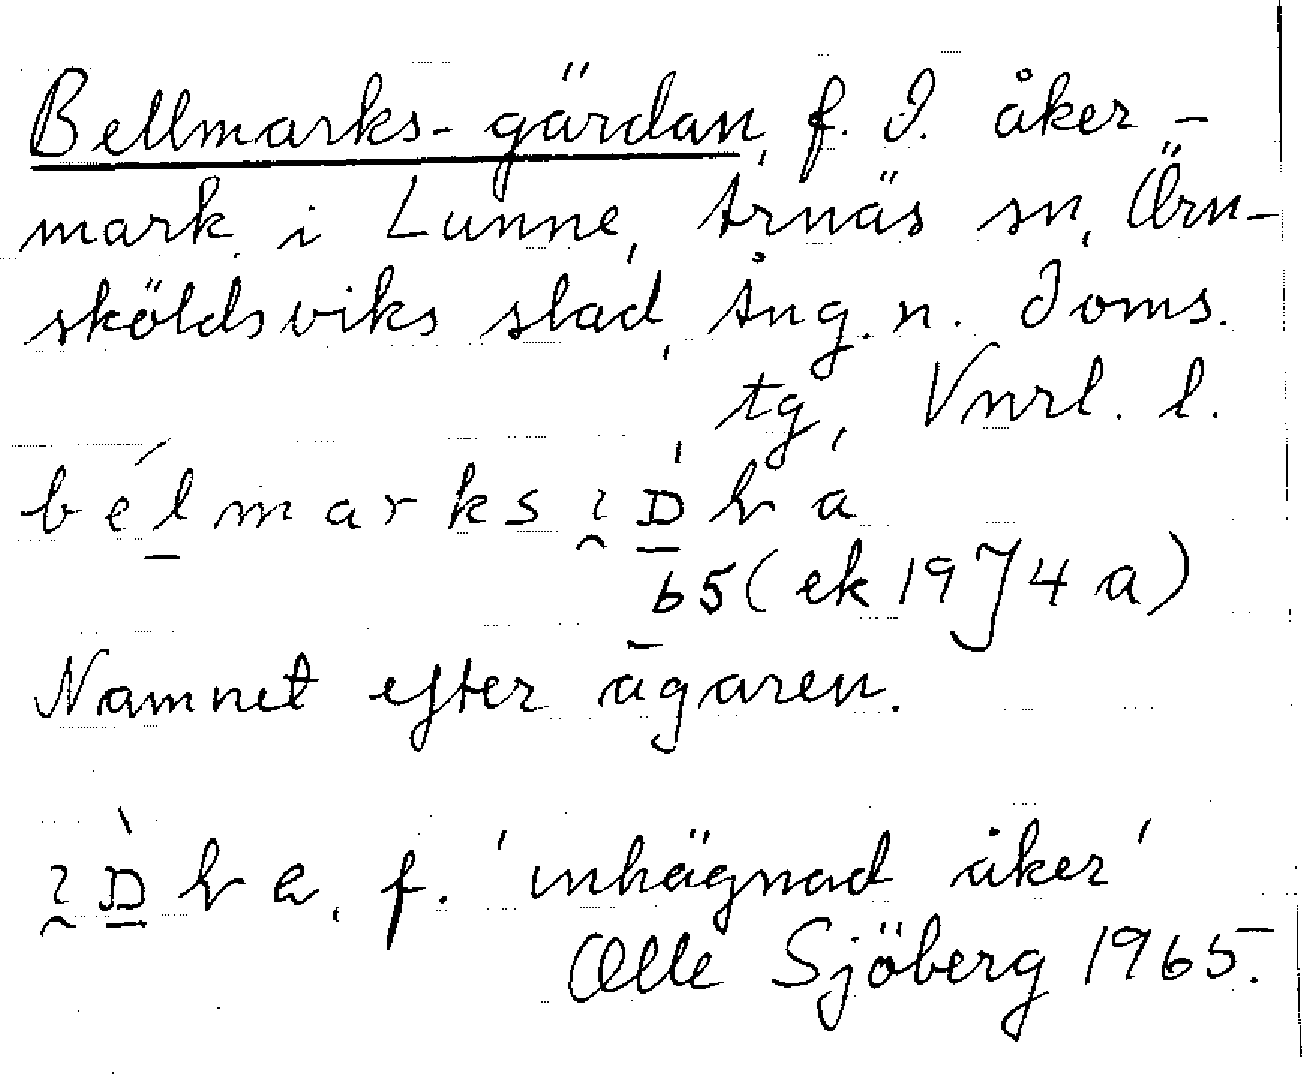 Bellmarks-gärdan, f. d. åker-
mark i Lunne, Arnäs sn, Örn-
sköldsviks stad, Ång. n. Doms.
tg, Vnrl. l.
bélmarks
65 (ek 1974 a)
Namnet efter ägaren.
f. 'inhägnad åker'
Olle Sjöberg 1965.